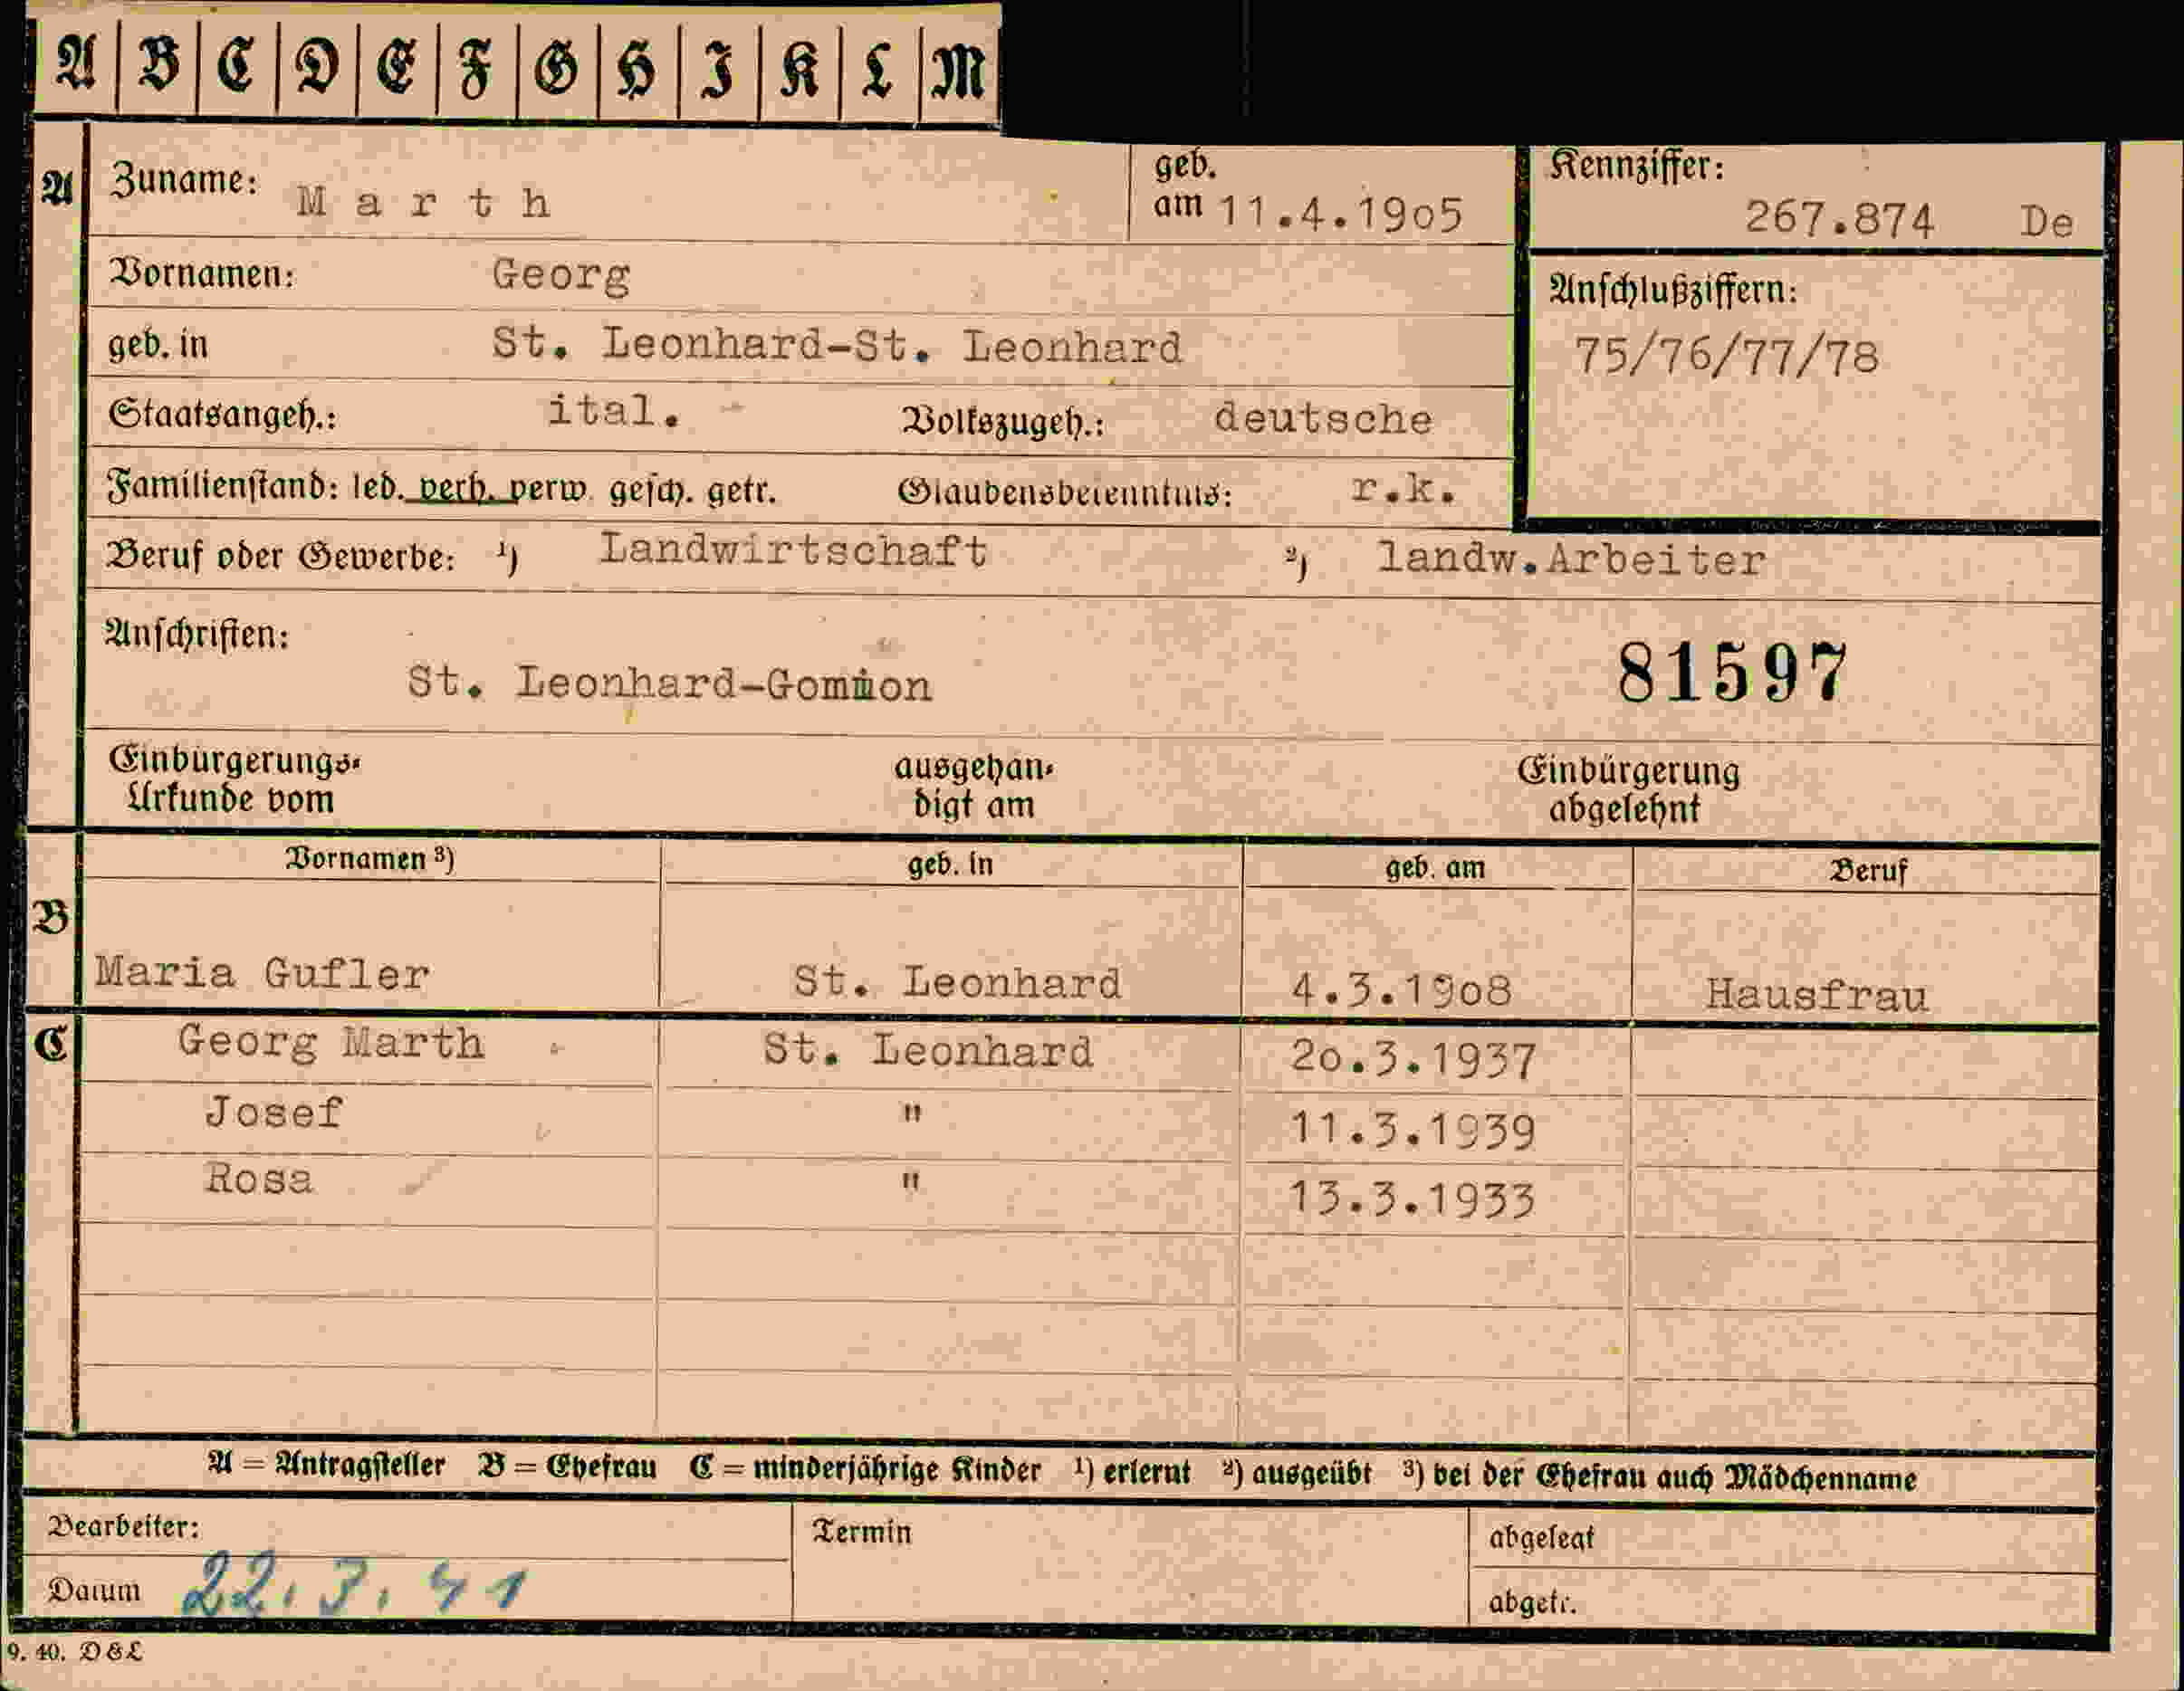 A B C D E F G H I K L M
A Zuname: Marth geb. am 11.4.1905 Kennziffer: 267.874 De
Vornamen: Georg Anschlußziffern:
geb. in St. Leonhard-St. Leonhard 75/76/77/78
Staatsangeh.: ital. Volkszugeh.: deutsche
Familienstand: led. verh. verw. gesch. getr. Glaubensbekenntnis: r.k.
Beruf oder Gewerbe: ¹) Landwirtschaft ²) landw.Arbeiter
Anschriften:
St. Leonhard-Gomion 81597
Einbürgerungs- ausgehän- Einbürgerung
Urkunde vom digt am abgelehnt
Vornamen ³) geb. in geb. am Beruf
B
Maria Gufler St. Leonhard 4.3.1908 Hausfrau
C Georg Marth St. Leonhard 20.3.1937
Josef " 11.3.1939
Rosa " 13.3.1933
A = Antragsteller B = Ehefrau C = minderjährige Kinder ¹) erlernt ²) ausgeübt ³) bei der Ehefrau auch Mädchenname
Bearbeiter: Termin abgelegt
Datum 22.7.41 abgetr.
9. 40. D&L